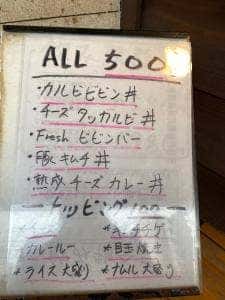 ALL 500
・カルビビビン丼
・チーズタッカルビ丼
・Fresh ビビンバー
・豚キムチ丼
・熟成チーズカレー丼
トッピング 100
*カレールー *目玉焼き
*ライス大盛り *ナムル大盛り